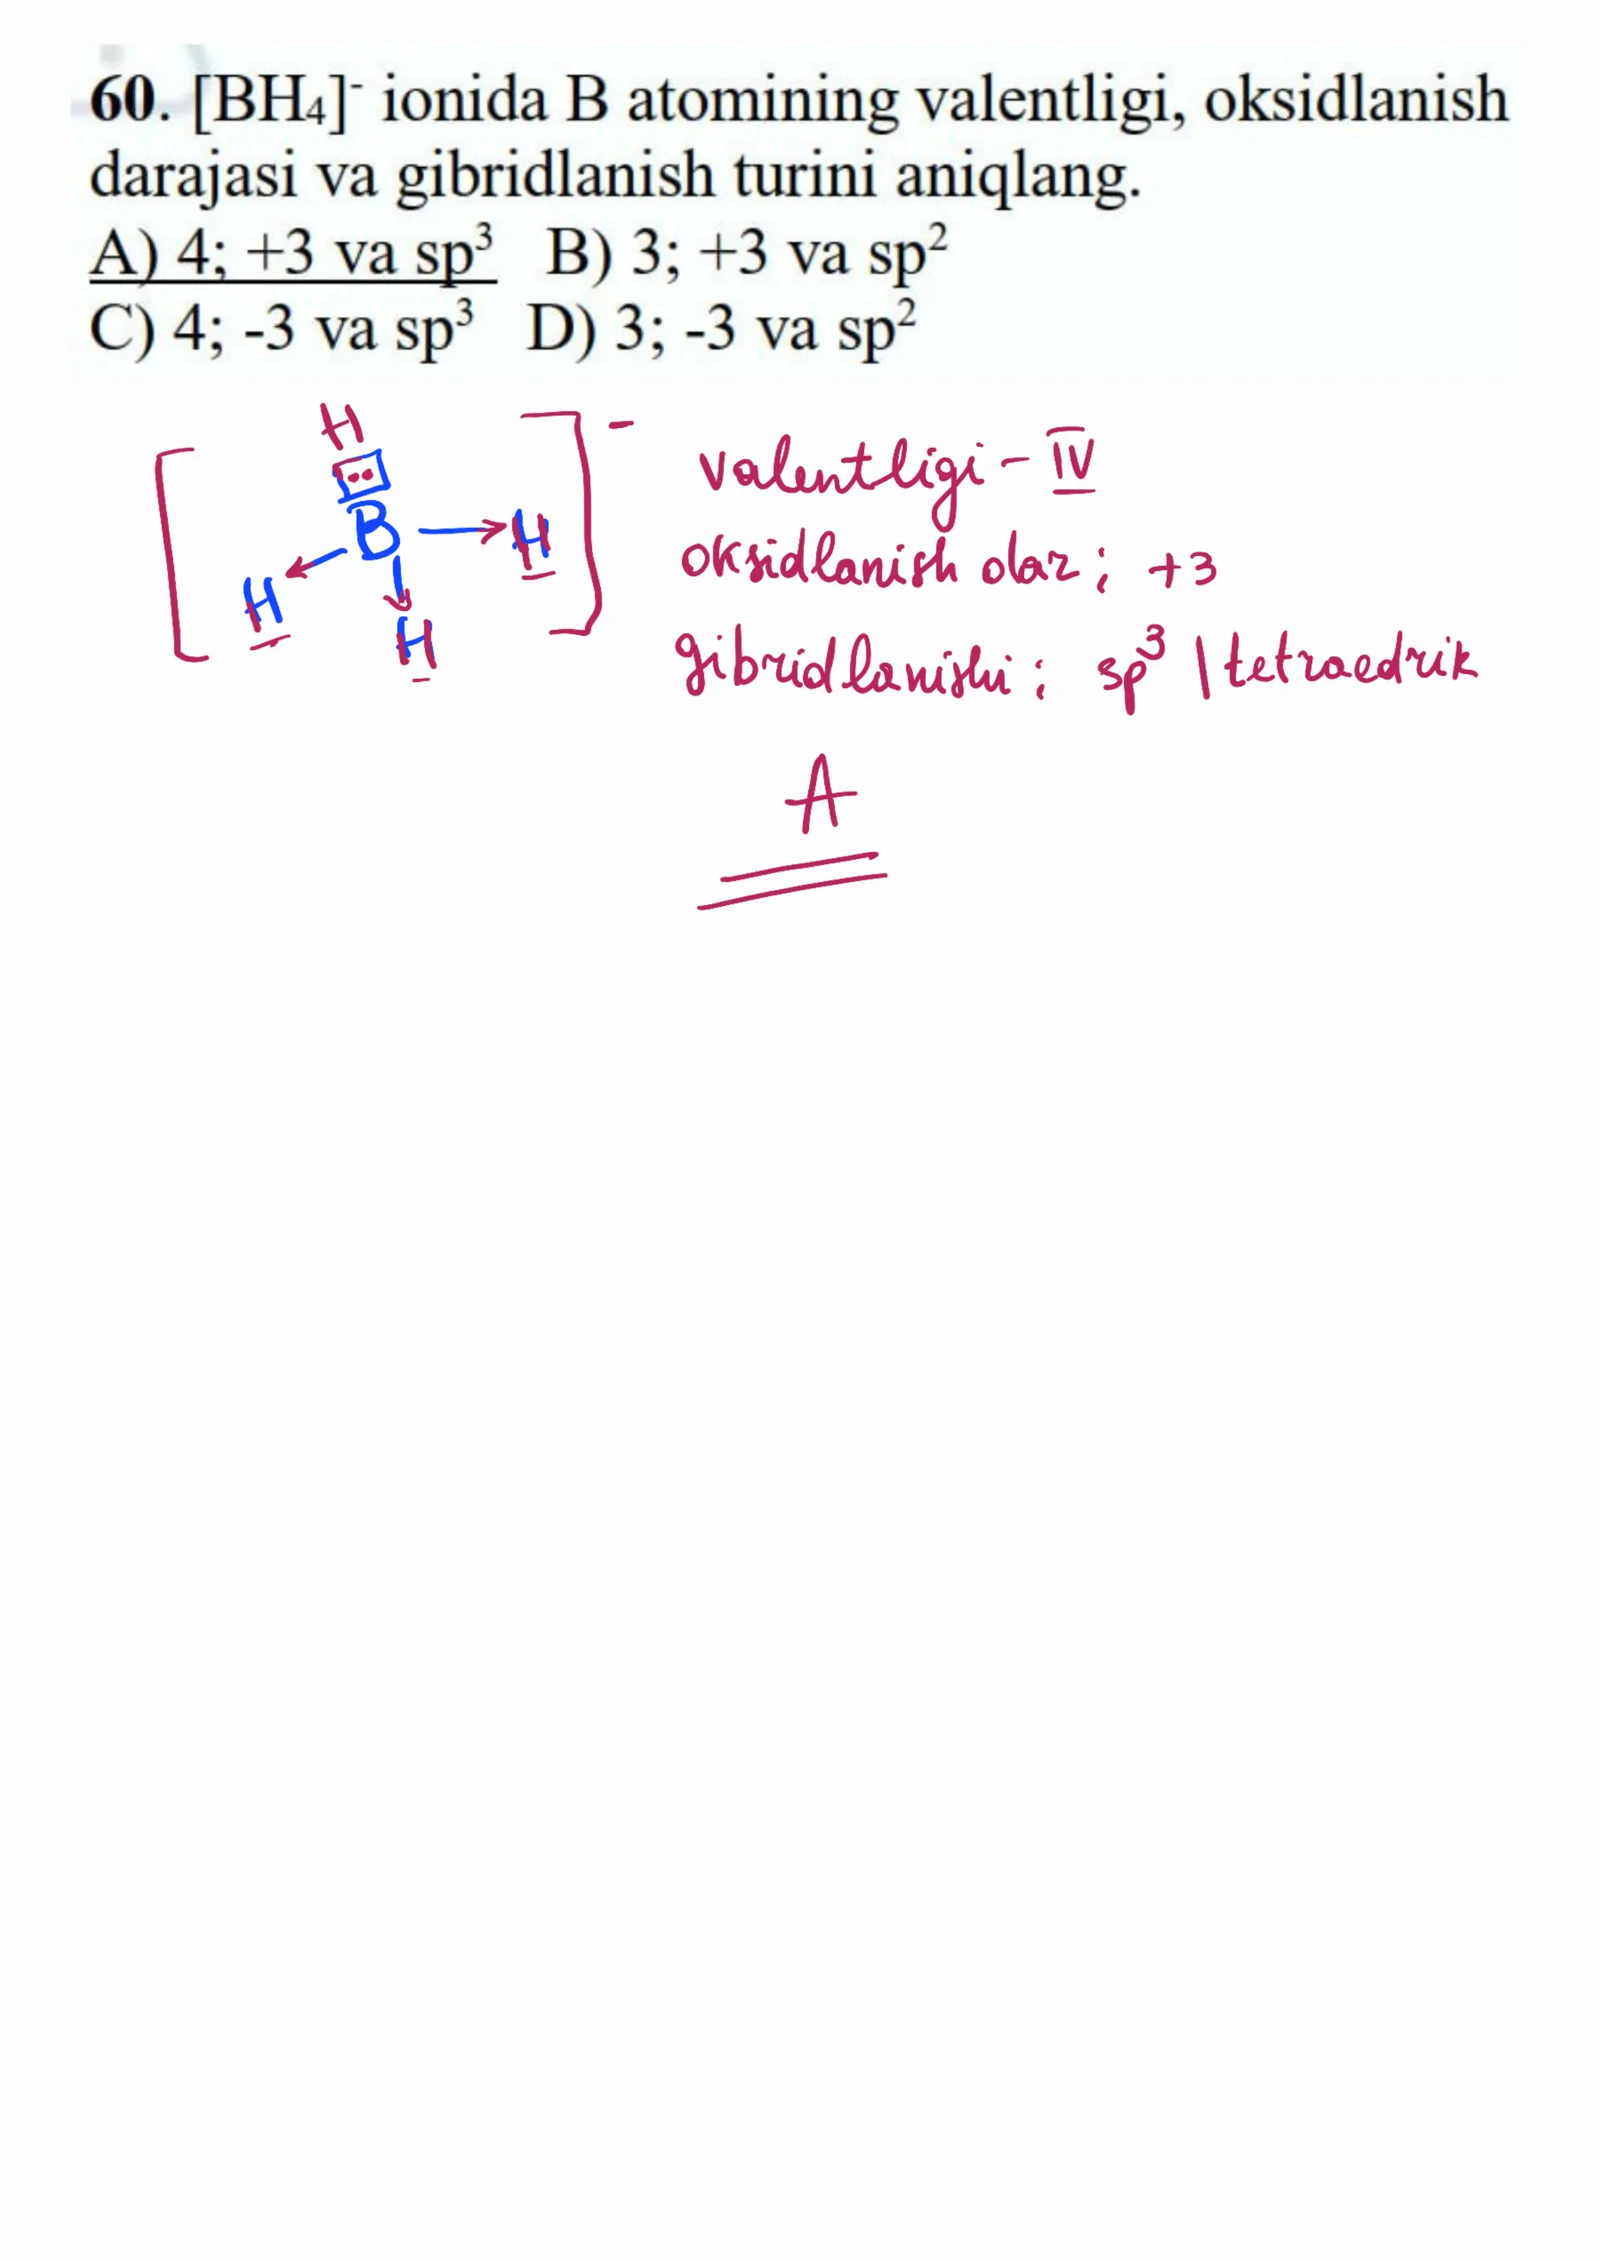 60. [BH₄]⁻ ionida B atomining valentligi, oksidlanish
darajasi va gibridlanish turini aniqlang.
A) 4; +3 va sp³ B) 3; +3 va sp²
C) 4; -3 va sp³ D) 3; -3 va sp²
H
B
H
H
H
-
valentligi - IV
oksidlanish dar; +3
gibridlanishi: sp³ | tetraedrik
A